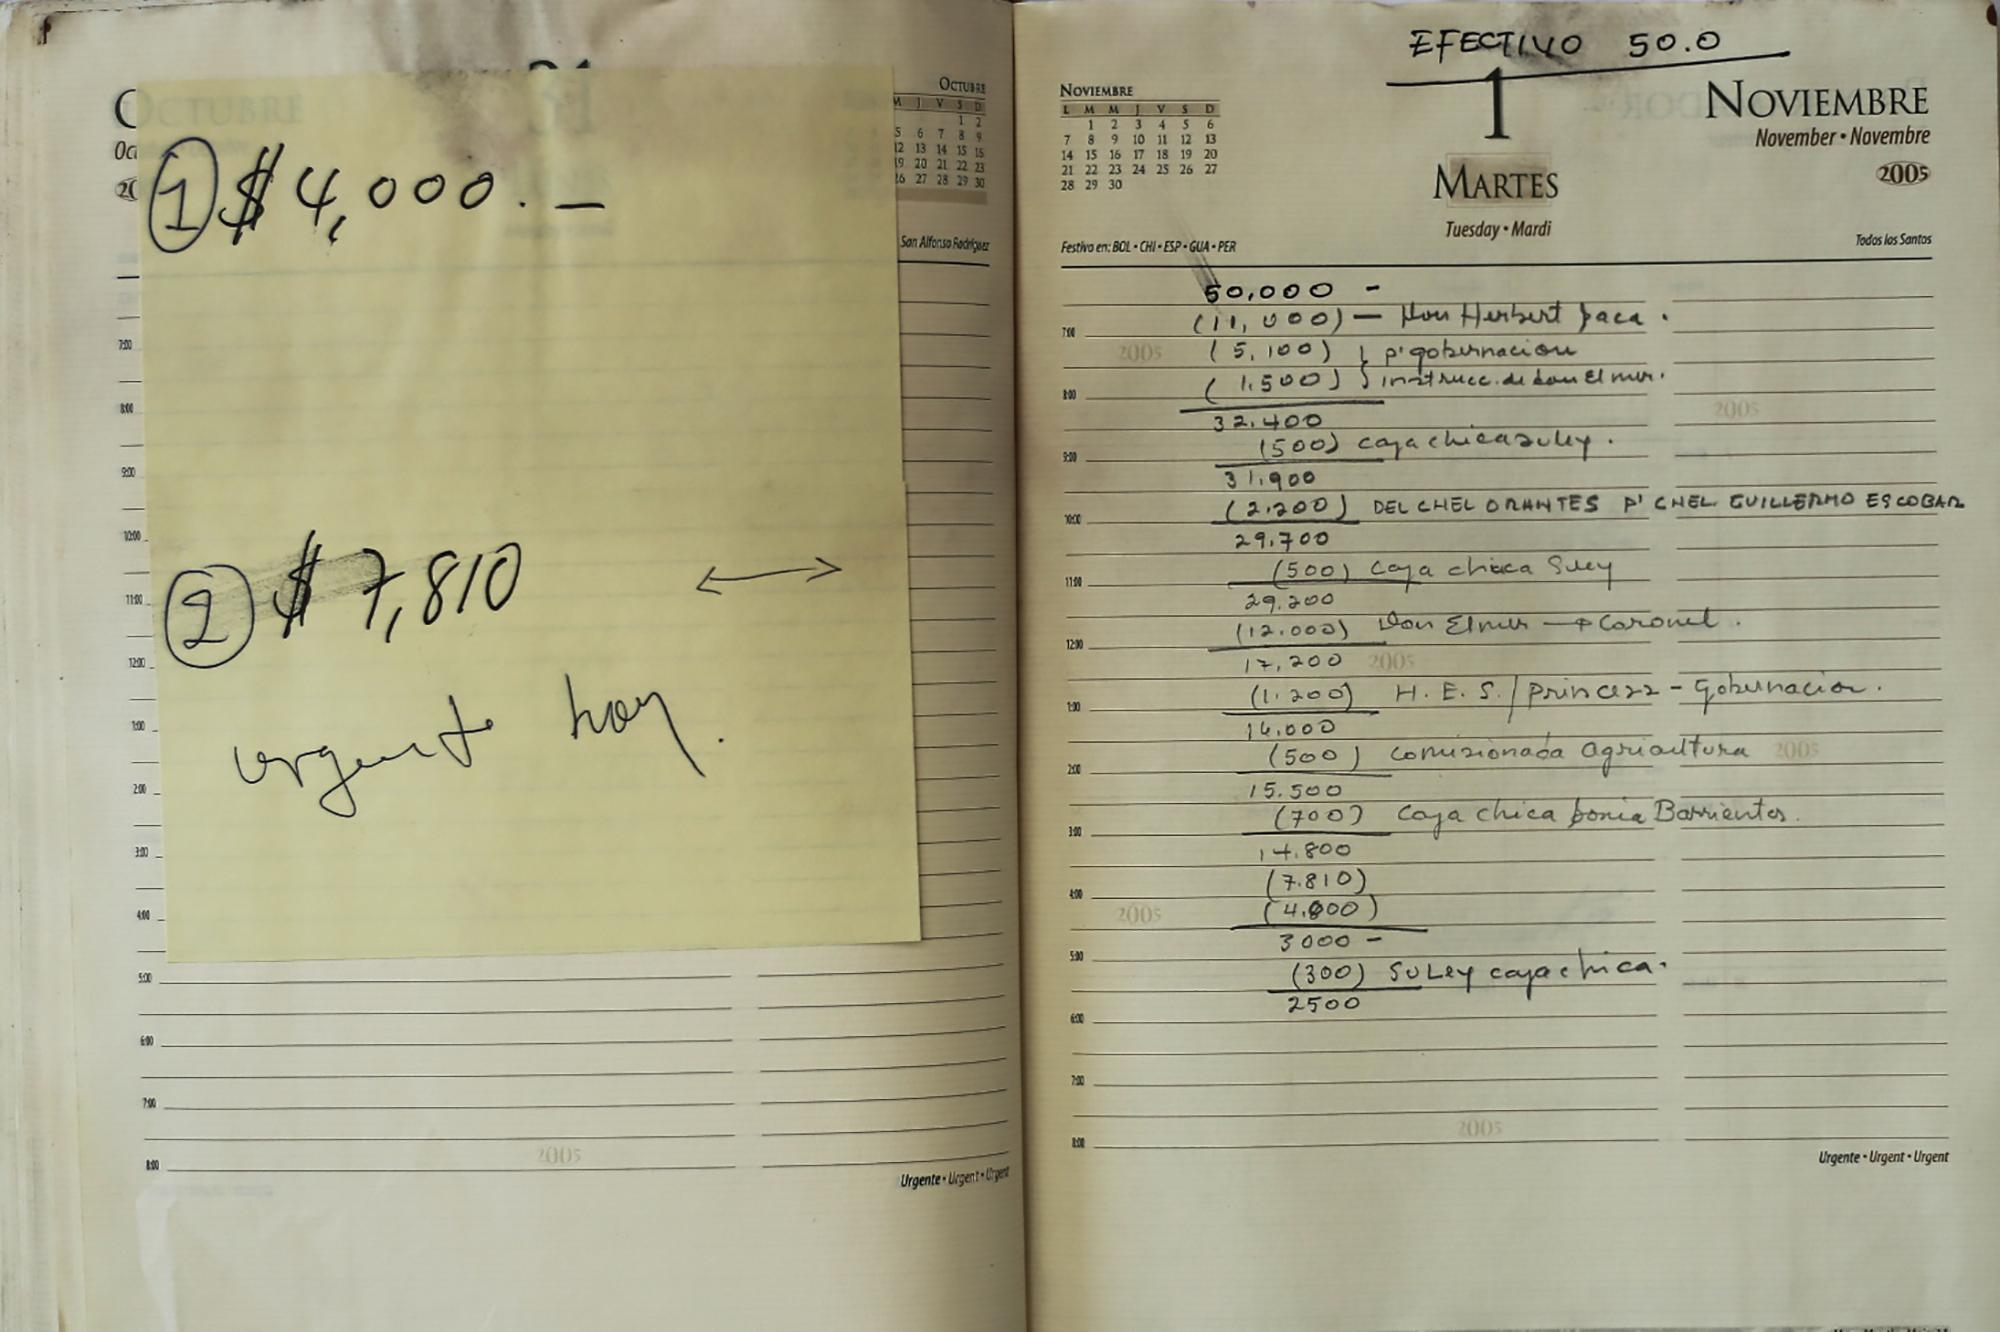 OCTUBRE
L M M J V S D
1 2
5 6 7 8 9
12 13 14 15 16
19 20 21 22 23
26 27 28 29 30
San Alfonso Rodríguez
① $ 4,000.—
② $ 7,810 ↔
urgente hoy.
7:00
8:00
9:00
10:00
11:00
12:00
1:00
2:00
3:00
4:00
5:00
6:00
7:00
8:00
2005
Urgente • Urgent • Urgent
EFECTIVO 50.0
NOVIEMBRE
L M M J V S D
1 2 3 4 5 6
7 8 9 10 11 12 13
14 15 16 17 18 19 20
21 22 23 24 25 26 27
28 29 30
1
MARTES
Tuesday • Mardi
NOVIEMBRE
November • Novembre
2005
Festivo en: BOL • CHI • ESP • GUA • PER
Todos los Santos
50,000 -
7:00 (11,000) — Don Herbert
2005 (5,100) } p' gobernacion
8:00 (1.500) } instrucc. de don Elmer.
32.400 2005
9:00 (500) caja chica suley.
31.900
10:00 (2.200) DEL CHEL ORANTES P' CHEL GUILLERMO ESCOBAR
29.700
11:00 (500) Caja chica Suley
29.200
12:00 (12.000) Don Elmer → Coronel.
17,200 2005
1:00 (1.200) H. E. S. / Princess - Gobernacion.
16.000
2:00 (500) Comisionada Agricultura 2005
15.500
3:00 (700) Caja chica Sonia Barrientos.
14.800
4:00 (7.810)
2005 (4.000)
5:00 3000 -
(300) Suley caja chica.
6:00 2500
7:00
2005
8:00
Urgente • Urgent • Urgent